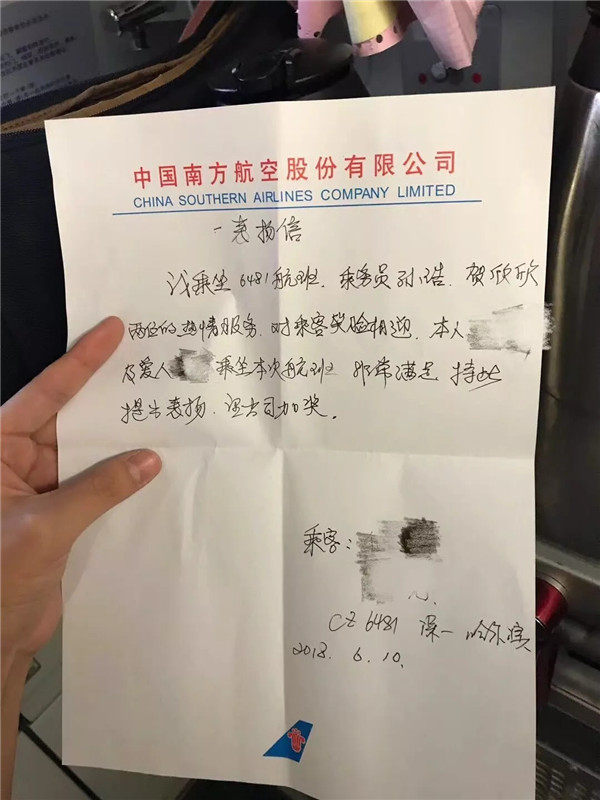 中国南方航空股份有限公司
CHINA SOUTHERN AIRLINES COMPANY LIMITED
表扬信
我乘坐6481航班.乘务员孙 贺欣欣
两位的热情服务.对乘客笑脸相迎.本人
及爱人 乘坐本次航班 非常满足 特此
提出表扬.望公司加奖.
乘客:
CZ 6481 深—哈尔滨
2018. 6. 10.